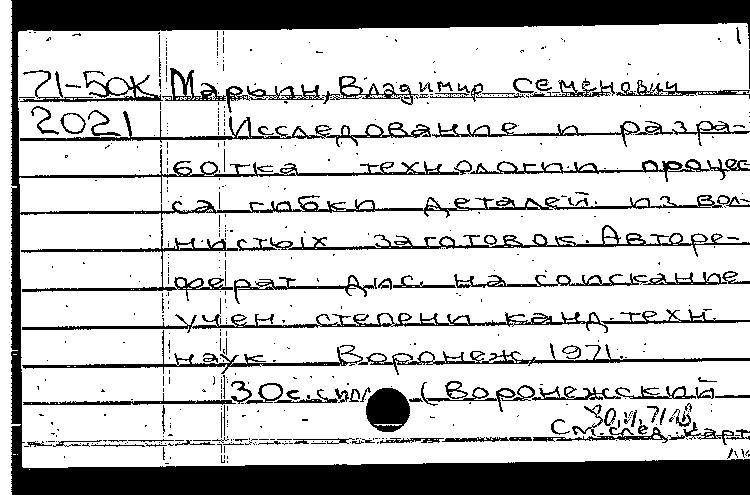 1
71-50К Марьин, Владимир Семенович
2021 Исследование и разра-
ботка технологии процес-
са гибки деталей из вол-
нистых заготовок. Авторе-
ферат дис. на соискание
учен. степени канд. техн.
наук. Воронеж, 1971.
30 с. с илл. (Воронежский
См. след. карт